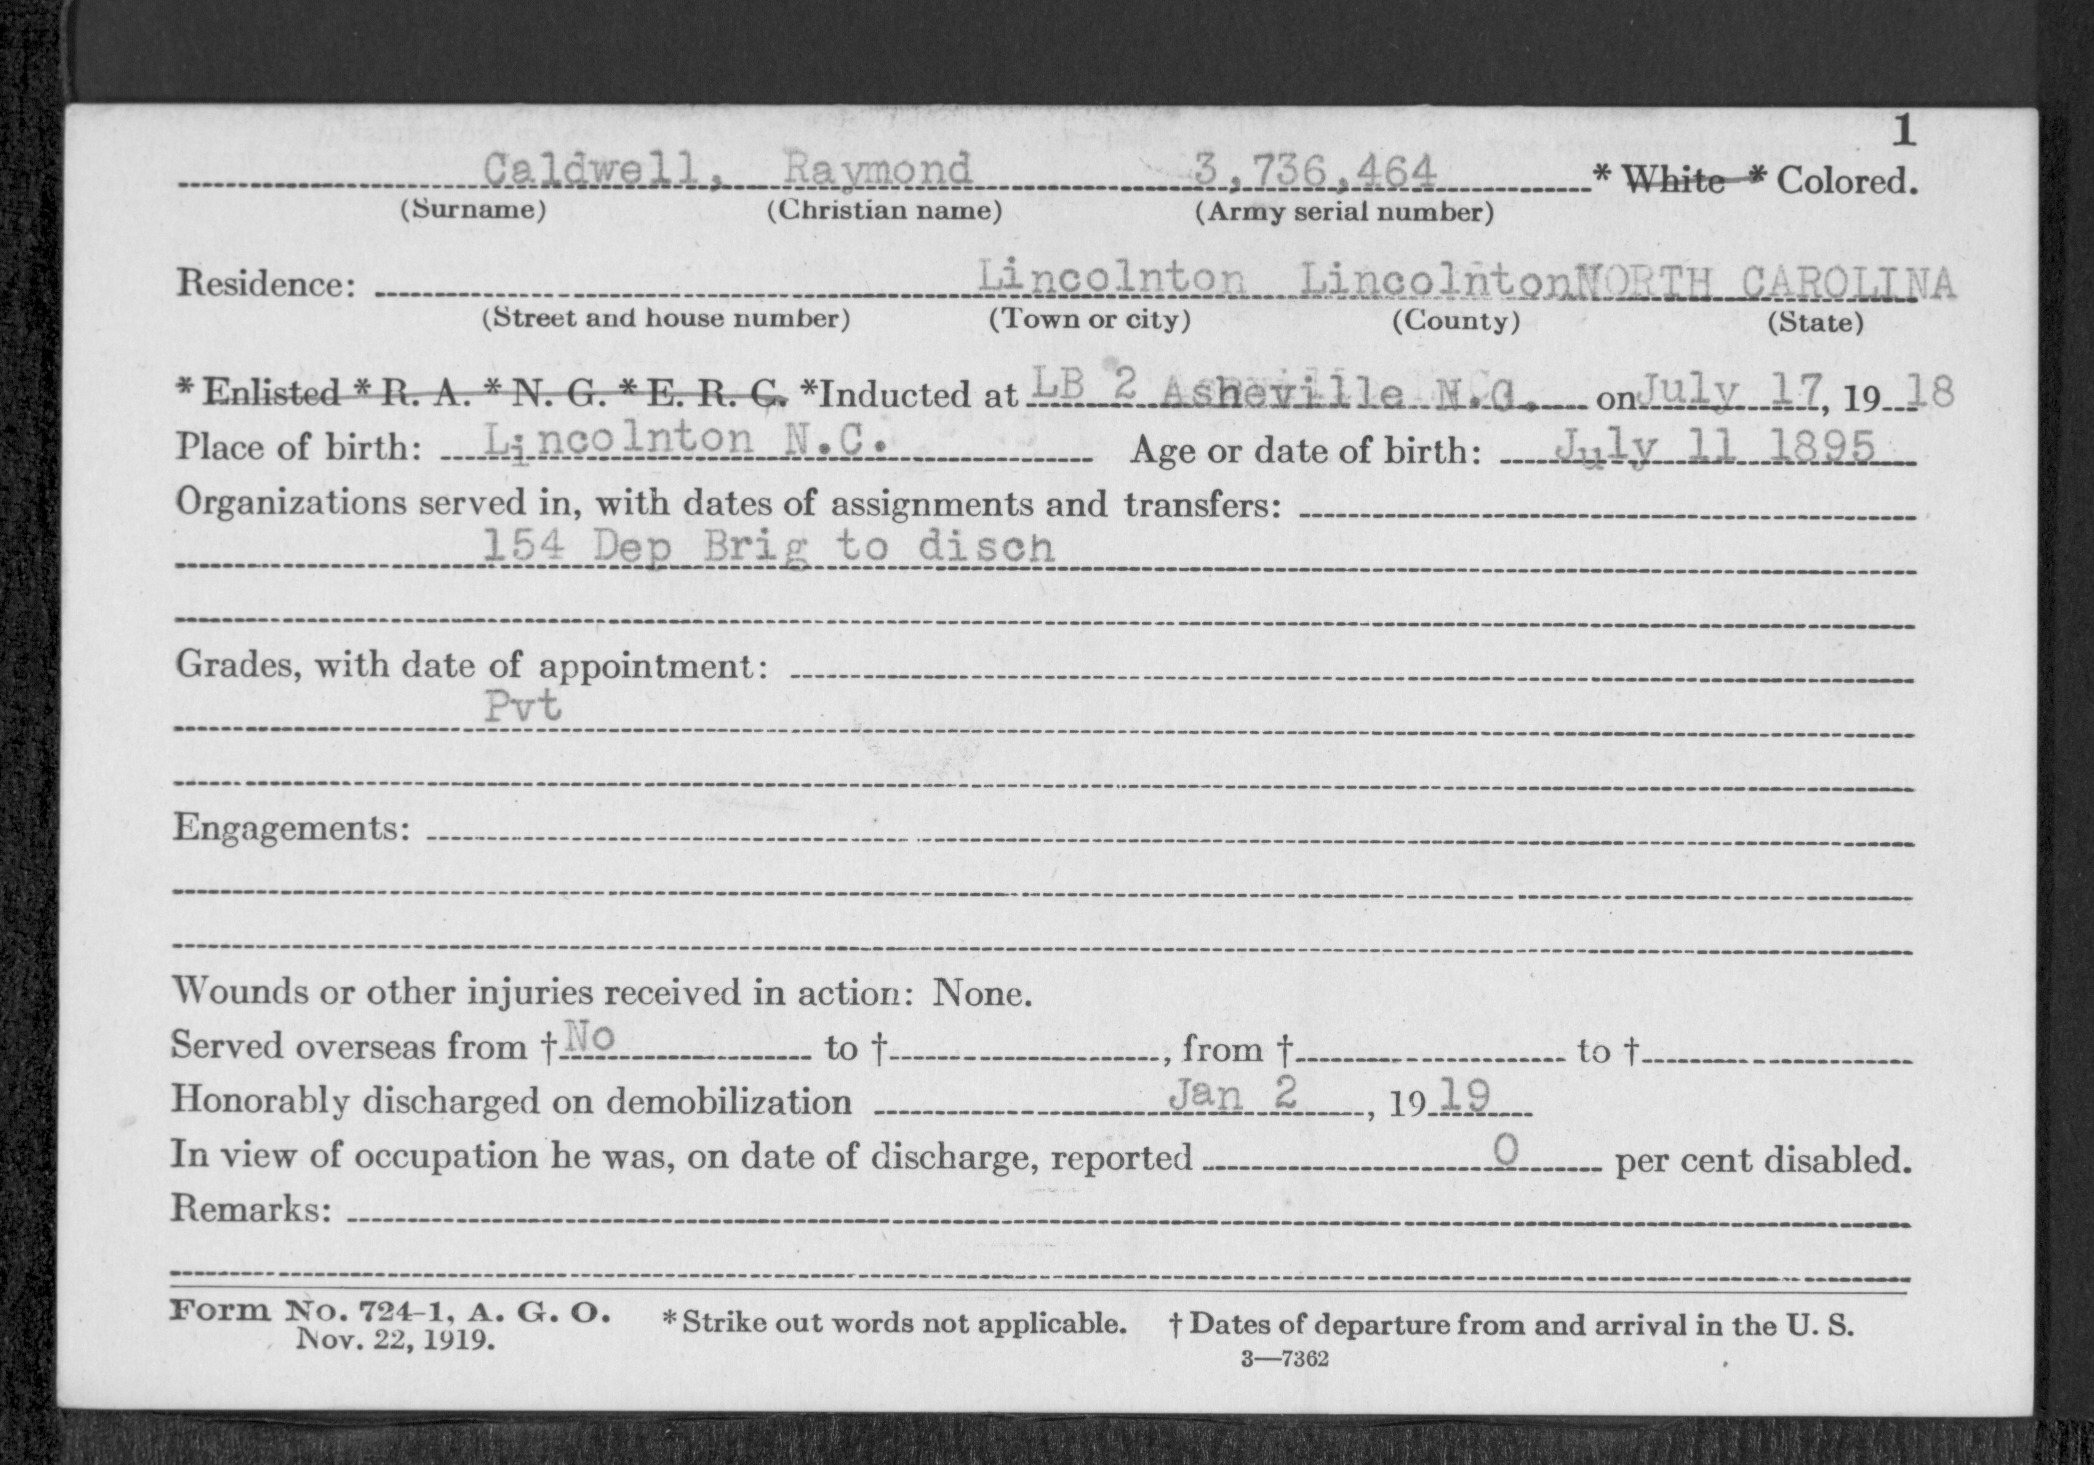 1
Caldwell, Raymond 3,736,464 * White * Colored.
(Surname) (Christian name) (Army serial number)
Residence: Lincolnton Lincolnton NORTH CAROLINA
(Street and house number) (Town or city) (County) (State)
* Enlisted * R. A. * N. G. * E. R. C. *Inducted at LB 2 Asheville N.C. on July 17, 19 18
Place of birth: Lincolnton N.C. Age or date of birth: July 11 1895
Organizations served in, with dates of assignments and transfers:
154 Dep Brig to disch
Grades, with date of appointment:
Pvt
Engagements:
Wounds or other injuries received in action: None.
Served overseas from † No to †, from † to †
Honorably discharged on demobilization Jan 2, 19 19
In view of occupation he was, on date of discharge, reported 0 per cent disabled.
Remarks:
Form No. 724-1, A. G. O. * Strike out words not applicable. † Dates of departure from and arrival in the U. S.
Nov. 22, 1919.
3—7362